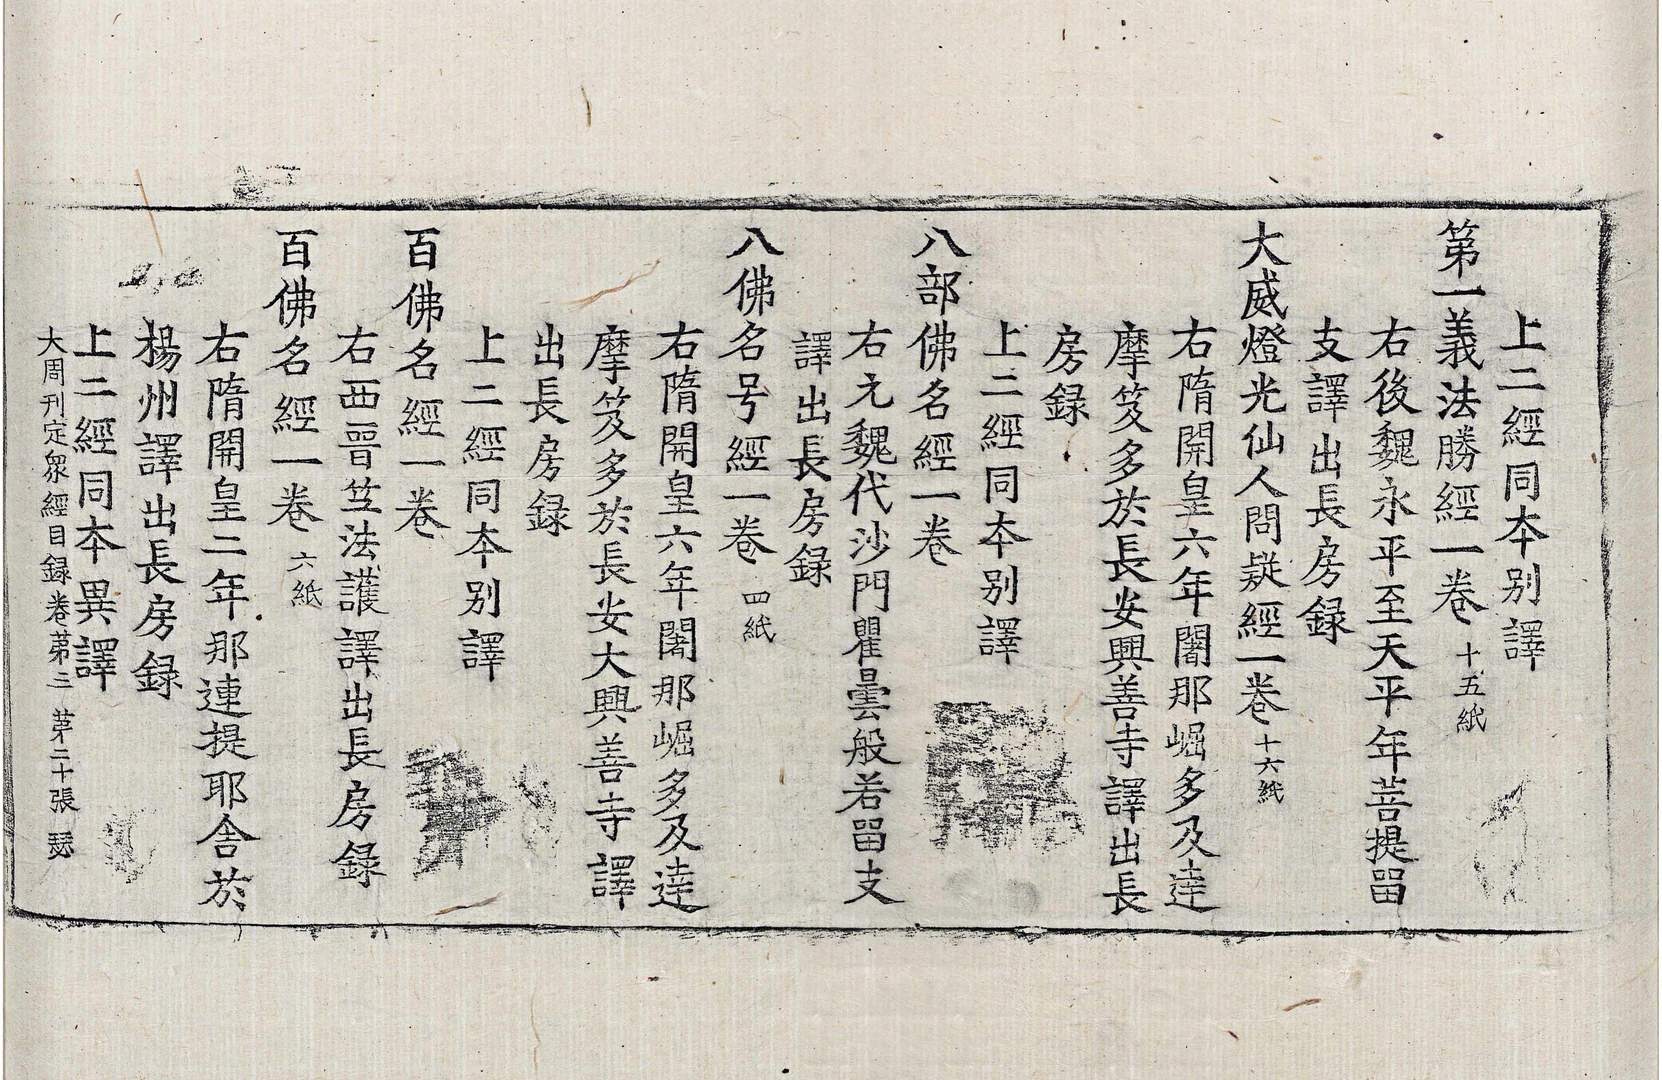 上二經同本别譯
第一義法勝經一卷 十五紙
右後魏永平至天平年菩提留
支譯出長房録
大威燈光仙人問疑經一卷 十六紙
右隋開皇六年闍那崛多及達
摩笈多於長安興善寺譯出長
房録
上二經同本别譯
八部佛名經一卷
右元魏代沙門瞿曇般若留支
譯出長房録
八佛名号經一卷 四紙
右隋開皇六年闍那崛多及達
摩笈多於長安大興善寺譯
出長房録
上二經同本别譯
百佛名經一卷
右西晉竺法護譯出長房録
百佛名經一卷 六紙
右隋開皇二年那連提耶舎於
楊州譯出長房録
上二經同本異譯
大周刊定衆經目録卷苐三 苐二十張 瑟